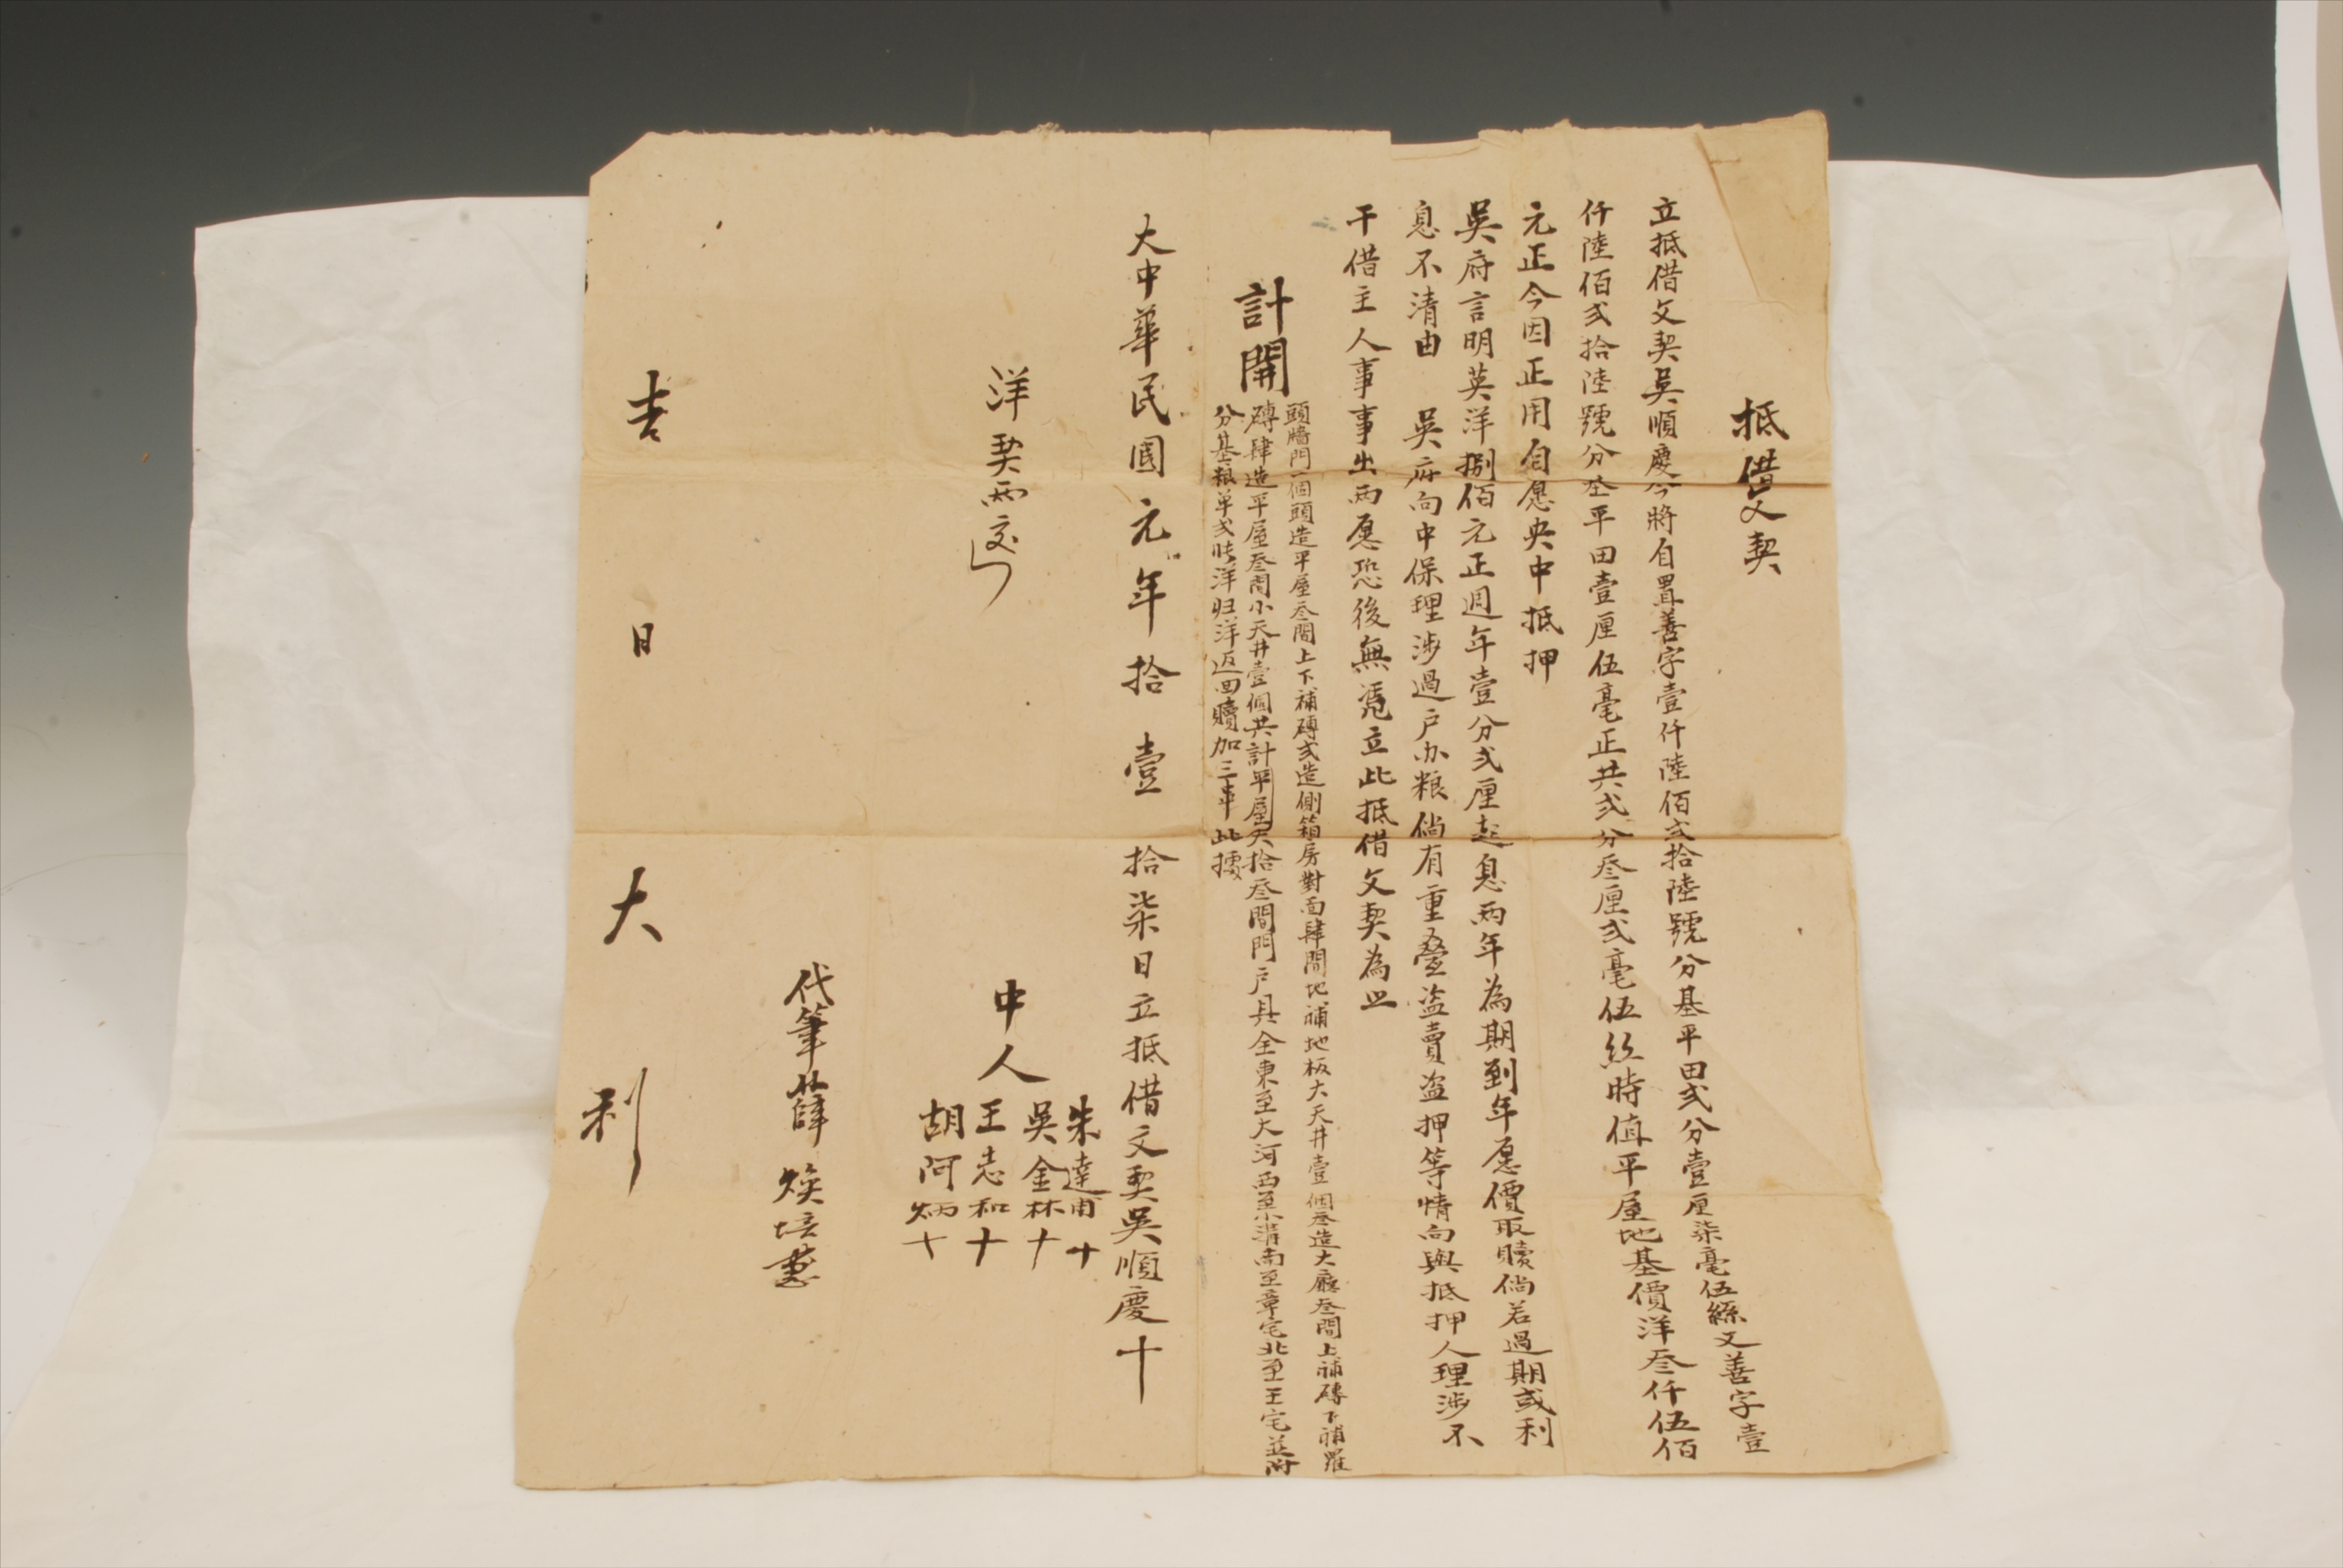 抵借文契
立抵借文契吳順慶今將自置善字壹仟陸佰弍拾陸號分基平田弍分壹厘柒毫伍絲又善字壹
仟陸佰弍拾陸號分基平田壹厘伍毫正共弍分叁厘弍毫伍絲時值平屋地基價洋叁仟伍佰
元正今因正用自愿央中抵押
吳府言明英洋捌佰元正週年壹分弍厘起息兩年為期到年愿價取贖倘若過期或利
息不清由　吳府向中保理涉過戶办粮倘有重叠盗賣盗押等情向與抵押人理涉不
干借主人事事出兩愿恐後無凴立此抵借文契為
計開
頭牆門一個頭造平屋叁間上下補磚弍造側箱房對面肆間地補地板大天井壹個叁造大廳叁間上補磚下補羅
磚肆造平屋叁間小天井壹個共計平屋大拾叁間門戶具全東至大河西至小濱南至章宅北至王宅並附
分基粮单弍張洋归洋返回贖加三事此據
大中華民國元年拾壹　拾柒日立抵借文契吳順慶十
洋契兩交
中人
朱達甫十
吳金林十
王志和十
胡阿炳十
代筆薛煥培
吉日大利